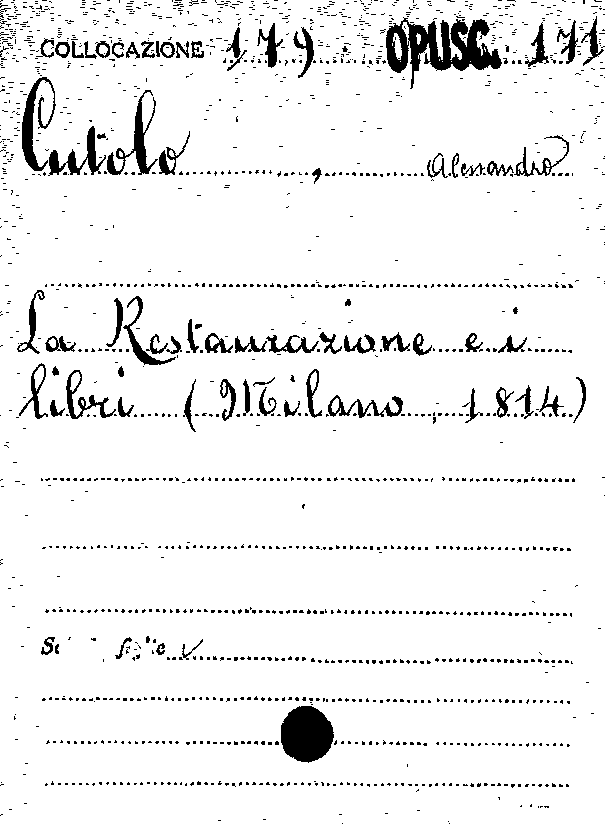 COLLOCAZIONE 179. OPUSC. 171
Cutolo, Alessandro
La Restaurazione e i
libri (Milano, 1814)